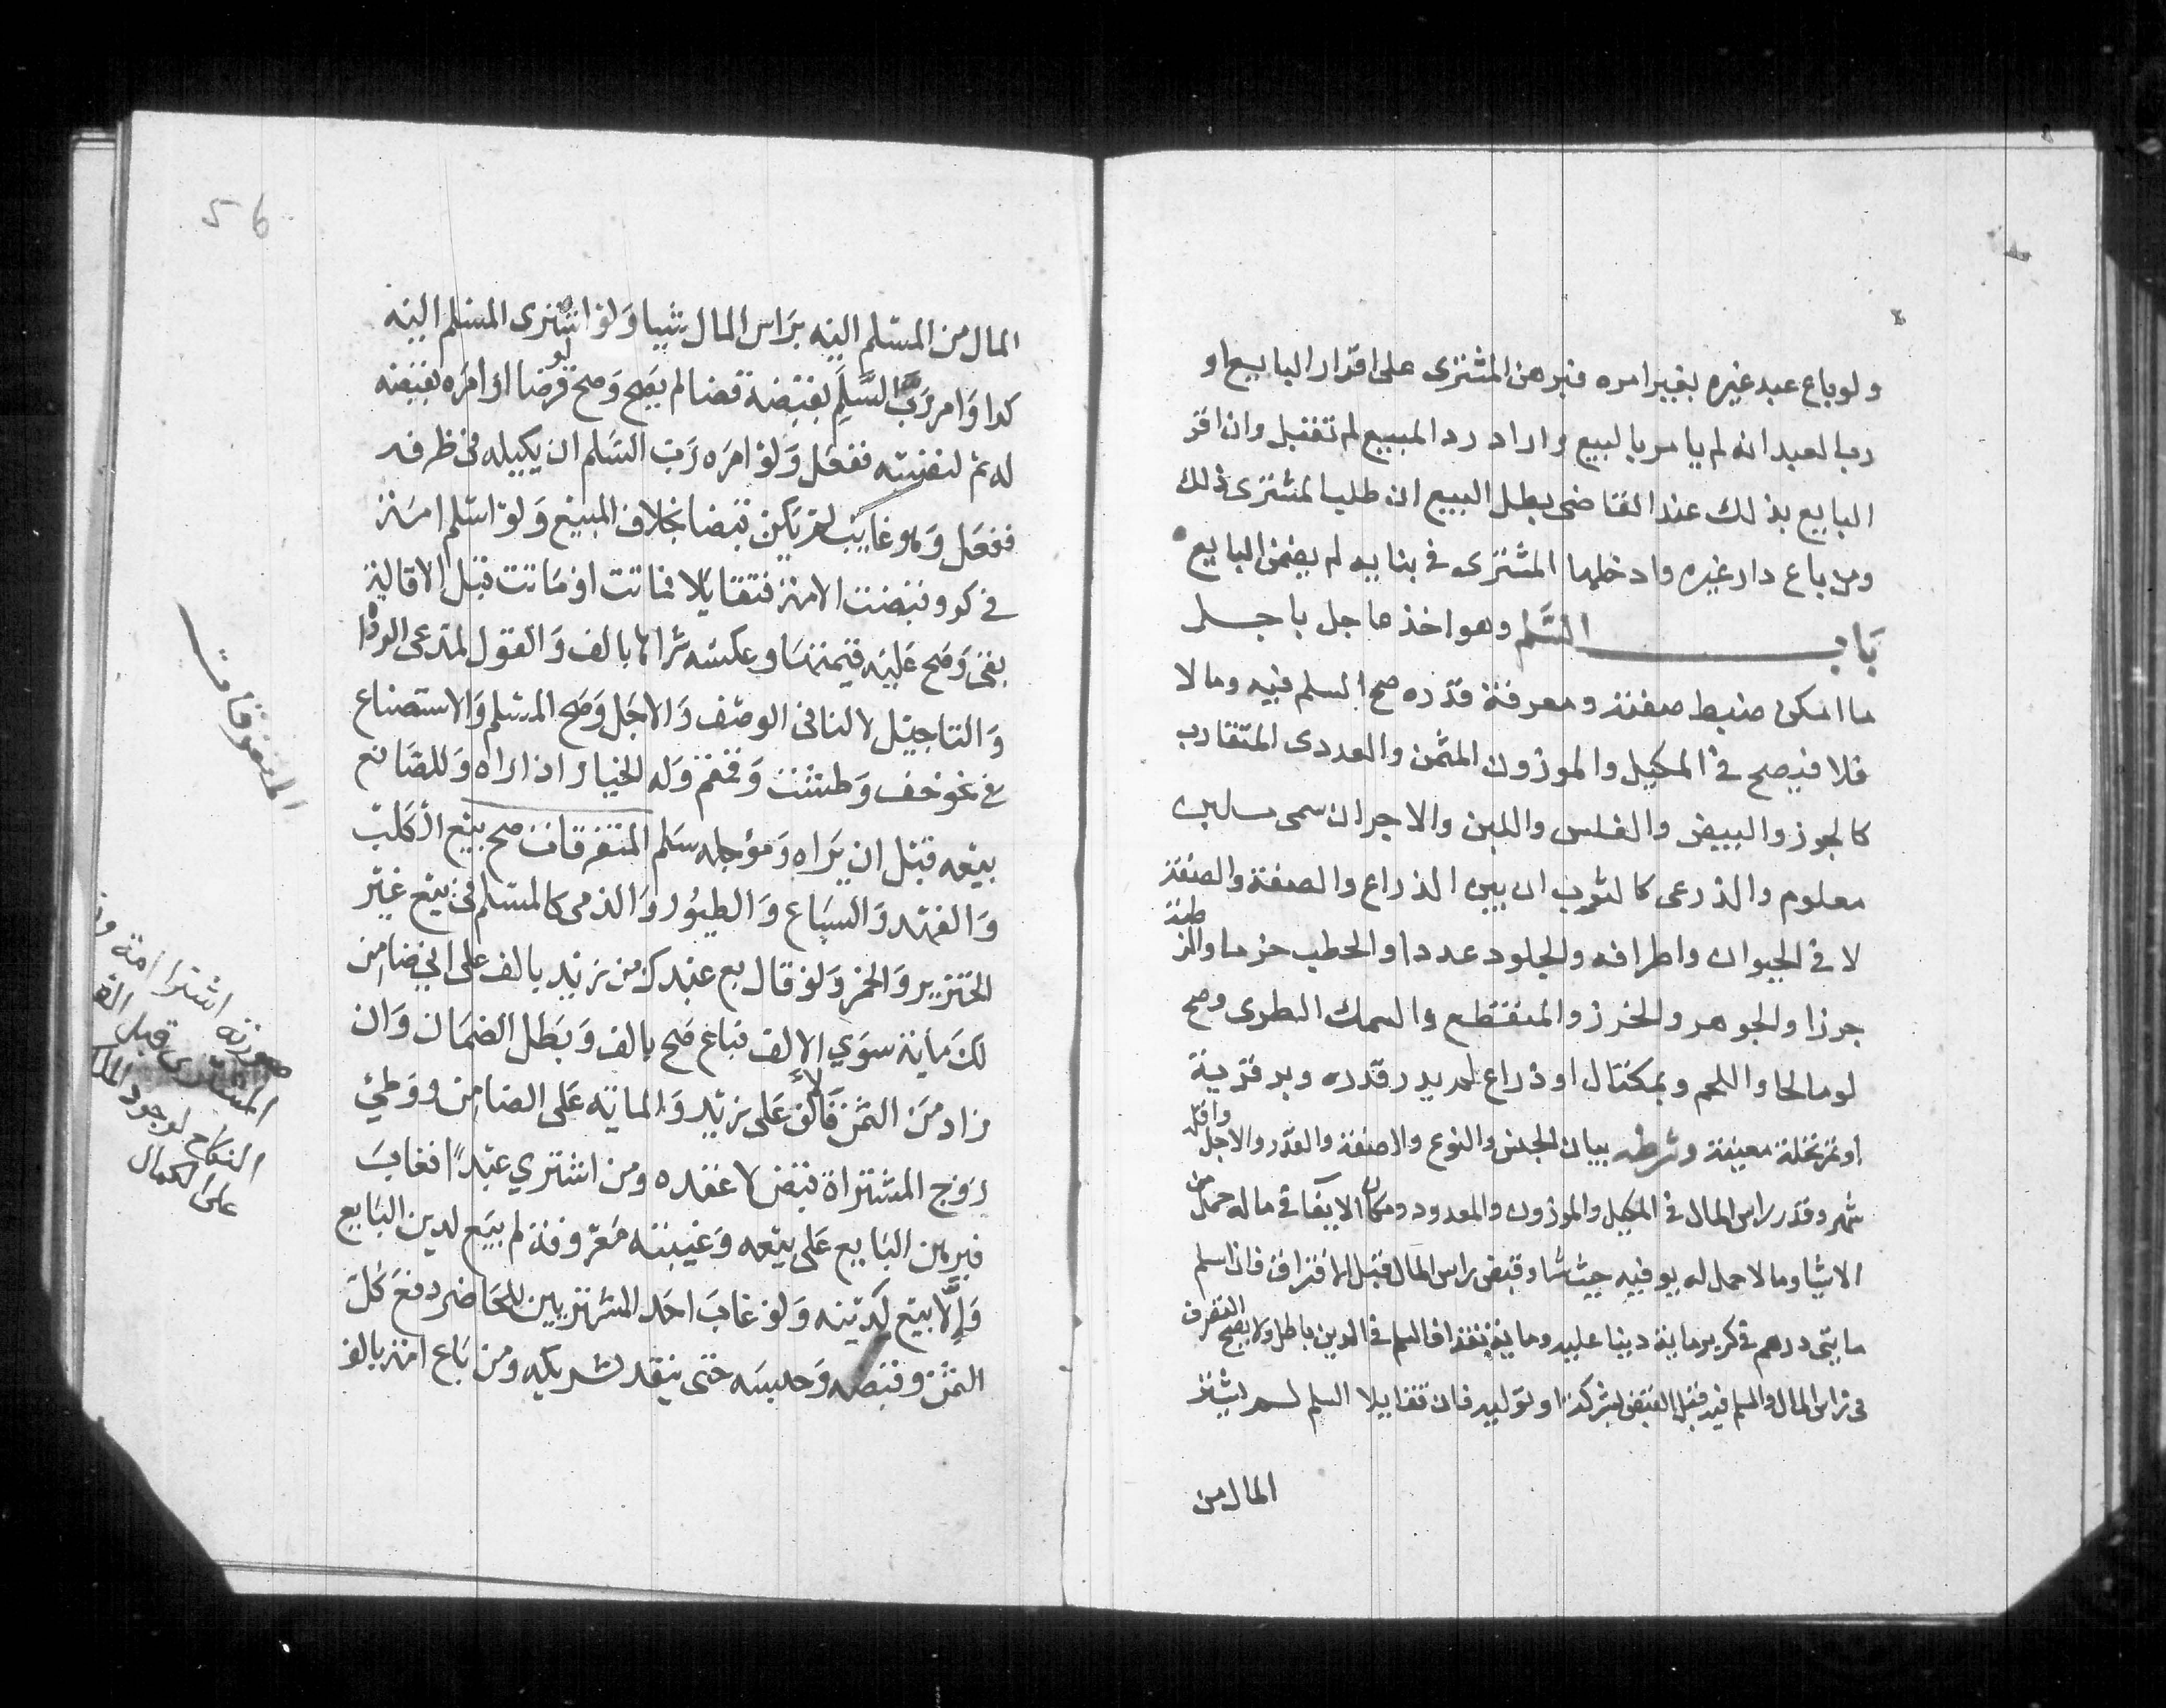 ولو باع عبد غيره بغير امره فبرهن المشترى على اقرار البايع او
رب العبد انه لم يامر بالبيع واراد رد المبيع لم تقبل وان اقر
البايع بذلك عند القاضى بطل البيع ان طلب المشترى ذلك
ومن باع دار غيره وادخلها المشترى فى بنايه لم يضمن البايع
باب السَّلم وهو اخذ عاجل باجل
ما امكن ضبط صفته ومعرفة قدره صح السلم فيه وما لا
فلا فيصح فى المكيل والموزون المثمن والعددى المتقارب
كالجوز والبيض والفلس واللبن والاجر ان سمى ملبن
معلوم والذرعى كالثوب ان بين الذراع والصفة والصنعة
لا فى الحيوان واطرافه والجلود عددا والحطب حزما والرطبة
جرزا والجوهر والخرز والمنقطع والسمك الطرى وصح
لو مالحا واللحم وبمكيال او ذراع لم يدر قدره وبر قرية
او تمر نخلة معينة وشرطه بيان الجنس والنوع والصفة والقدر والاجل واقله
شهر وقدر راس المال فى المكيل والموزون والمعدود ومكان الايفا فى ما له حمل من
الاشيا وما لا حمل له يوفيه حيث شا وقبض راس المال قبل الافتراق فان اسلم
مايتى درهم فى كر بر ماية دينا عليه وماية نقدا فالسلم فى الدين باطل ولا يصح التصرف
فى راس المال والمسلم فيه قبل القبض بشركة او تولية فان تقايلا السلم لم يشتر
المال من
56
المال من المسلم اليه براس المال شيا وَلو اشترى المسلم اليه
كرا وَامر رَبَّ السَّلَمِ بقبضه قضا لم يصح وَصح لو قرضا او امرَه بقبضه
له ثم لنفسه ففعل وَلو امرَه رَب السَلم ان يكيله فى ظرفه
ففعل وَهو غايب لم يكن قبضا بخلاف المبيع وَلو اسلم امَة
فى كر وقبضت الامة فتقايلا فماتت او مَاتت قبل الاقالة
بقى وَصح عَليه قيمتها وعكسه شراها بالف وَالقول لمدعى الرداة
وَالتاجيل لا لنافى الوصف وَالاجَل وَصح السلم وَالاستصناع
فى نحو خف وَطشت وَقمقم وَله الخيار اذا راه وَللصَانع
بيعه قبل ان يَراه وَمؤجله سَلم المتفرقات صح بيع الكَلب
وَالفهد وَالسبَاع وَالطيُور وَالذمى كالمسلم فى بيع غير
الخنزير وَالخمر وَلو قال بع عبدك من زيد بالف على انى ضامن
لكَ ماية سوَي الالف فباع صَح بالف وَبَطل الضمَان وَان
زاد من الثمن فالالف عَلى زيد وَالماية عَلى الضامن ووَطئ
زوج المشتراة قبض لا عقده ومن اشتري عبدًا فغابَ
فبرهن البَايع عَلى بيعه وَغيبته مَعروفة لم يبَع لدين البَايع
وَإلّا بيع لدَينه وَلو غابَ احَد المشتريين للحَاضر دفعَ كُل
الثمن وقبضه وَحبسَه حتى ينقد شريكه ومن بَاع امة بالف
المتفرقات
صورته اشترا امة
المشترى قبل
النكاح لوجود
على الكمال